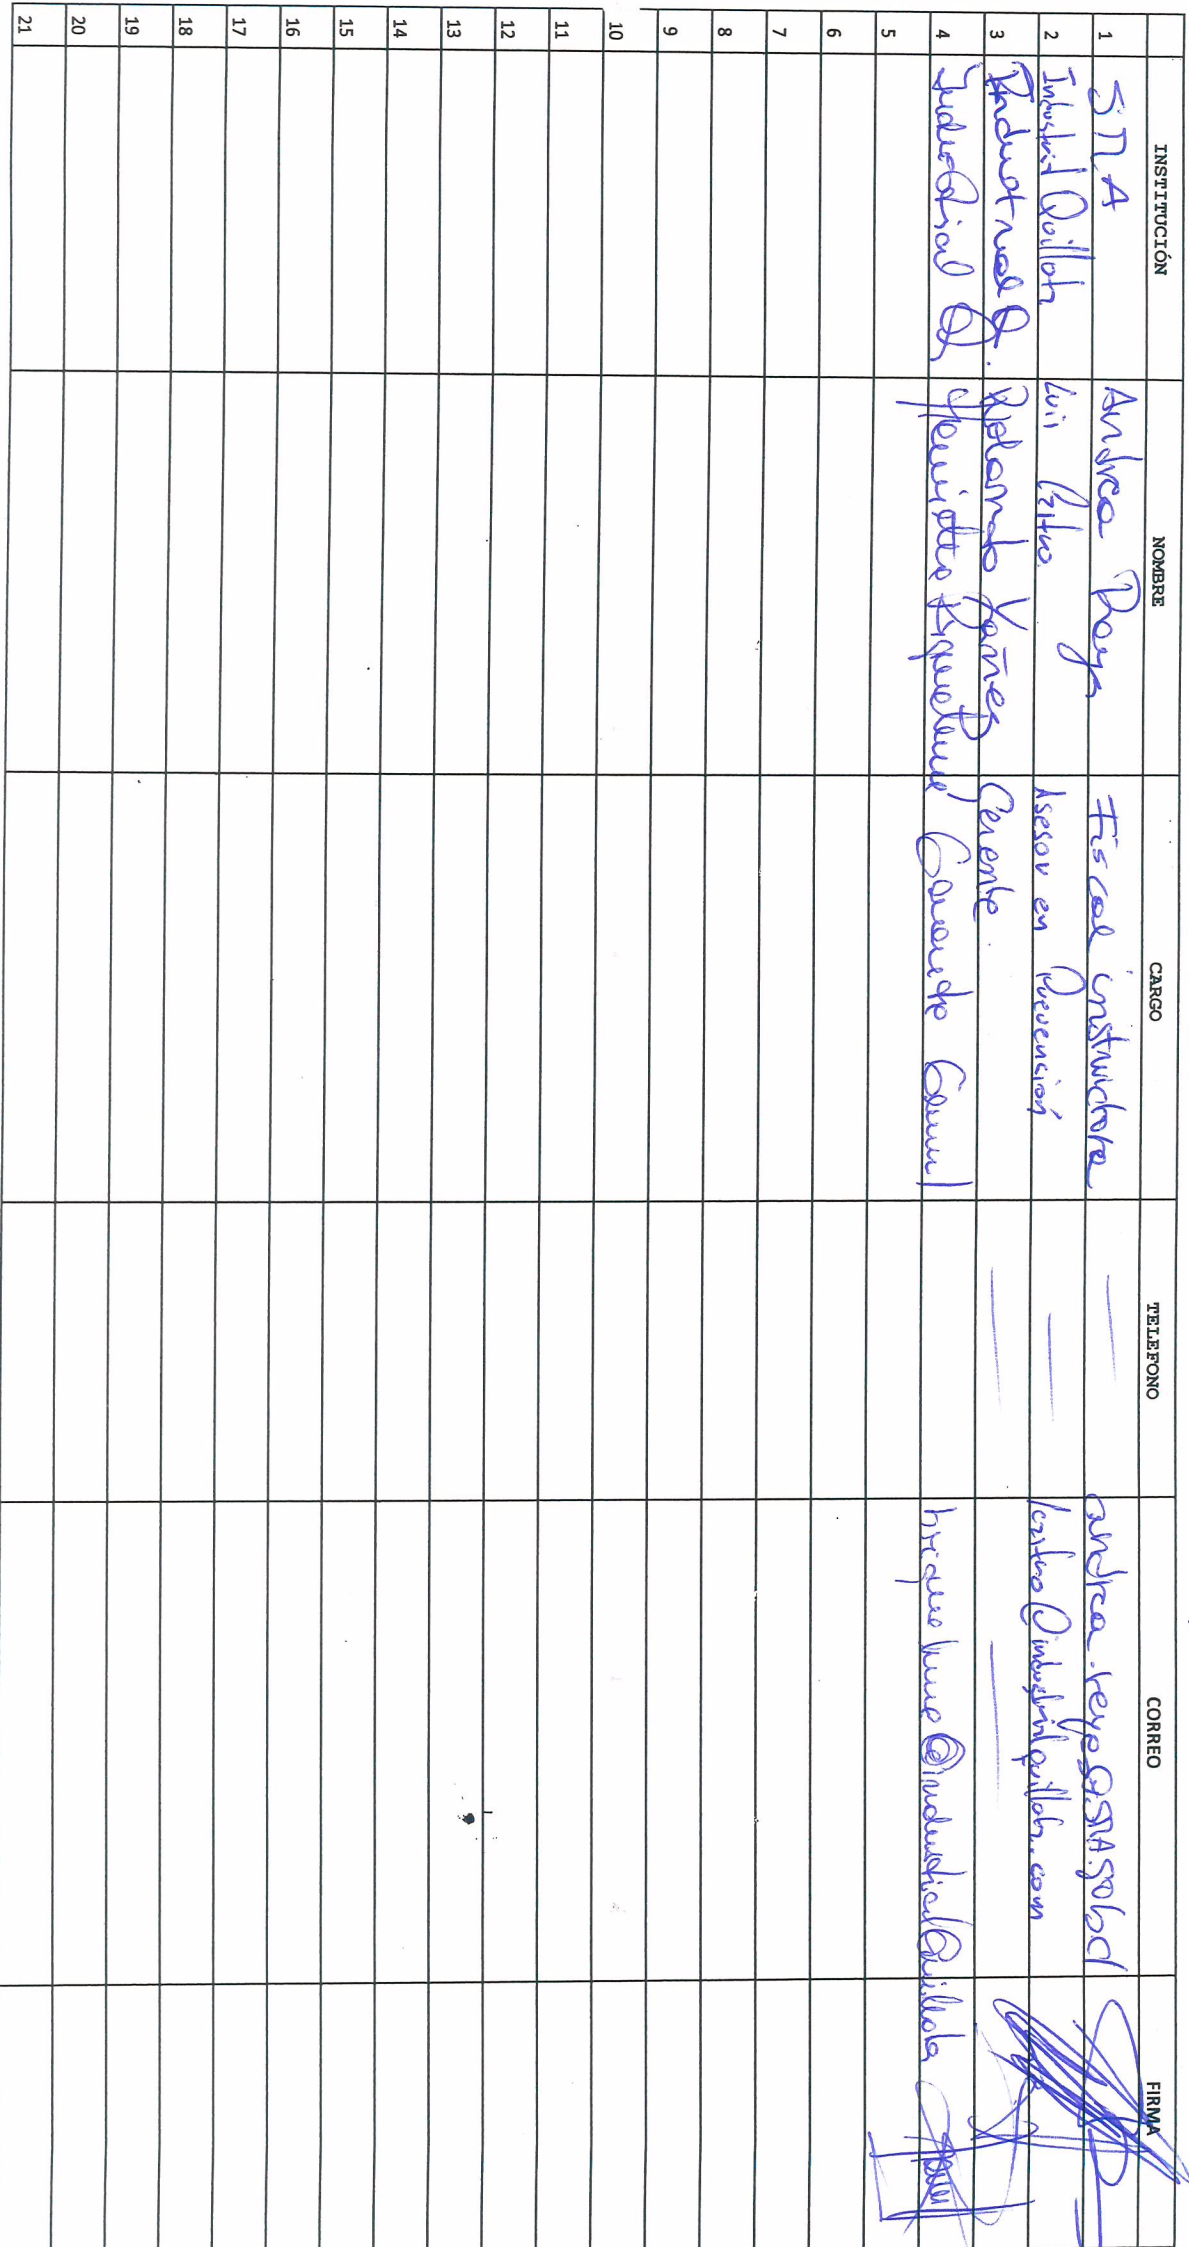 INSTITUCIÓN NOMBRE CARGO TELEFONO CORREO FIRMA
1 SMA Andrea Reyes Fiscal instructora — andrea.reyes@SMA.gob.cl
2 Industrial Quillota Luis Castro Asesor en Prevención — lcastro@industrialquillota.com
3 Industrial Q. Rolando Yañez Gerente. —
4 Industrial Q Gerente
5
6
7
8
9
10
11
12
13
14
15
16
17
18
19
20
21